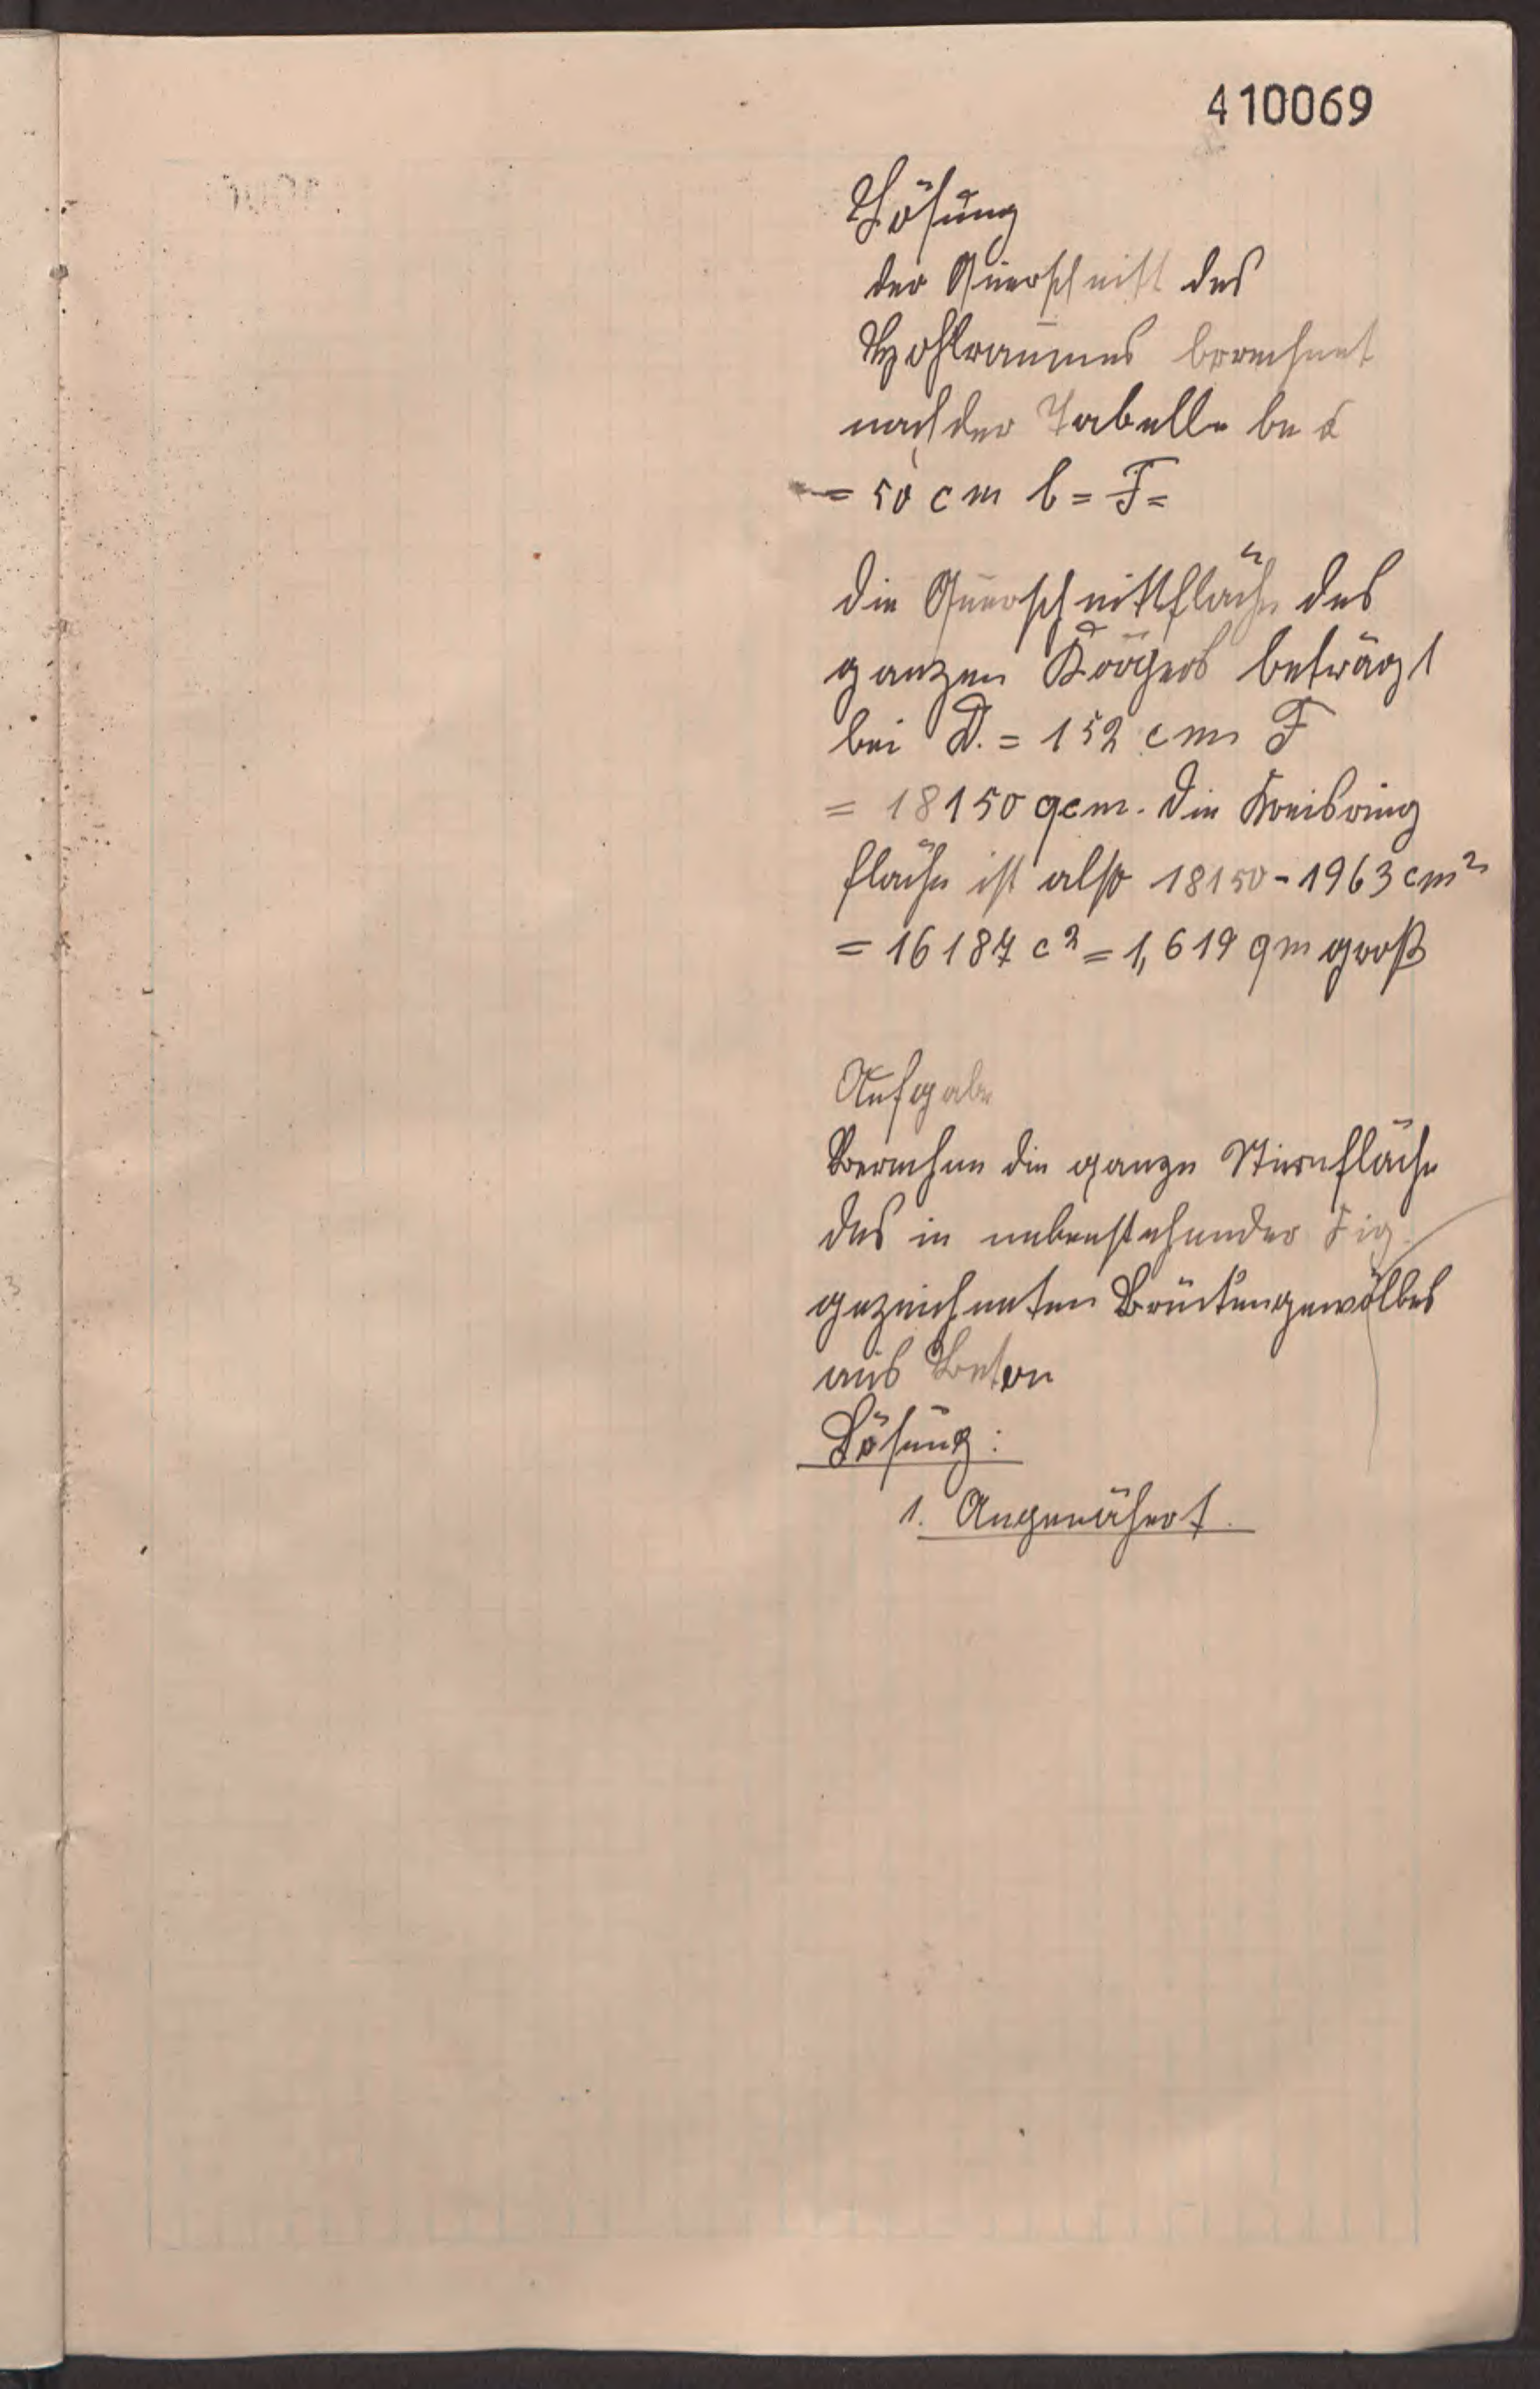 410069
Lösung
der Querschnitt des
Hohlraumes berechnet
nach der Tabelle be d
= 50 cm b = F =
die Querschnittfläche des
ganzen Körpers beträgt
bei D. = 152 cm F
= 18150 qcm. Die Kreisring
fläche ist also 18150 - 1963 cm²
= 16187 c² = 1,619 qm groß
Aufgabe
Berechne die ganze Stirnfläche
des in nebenstehender Fig.
gezeichneten Brückengewölbes
aus Beton
Lösung:
1. Angenähert.